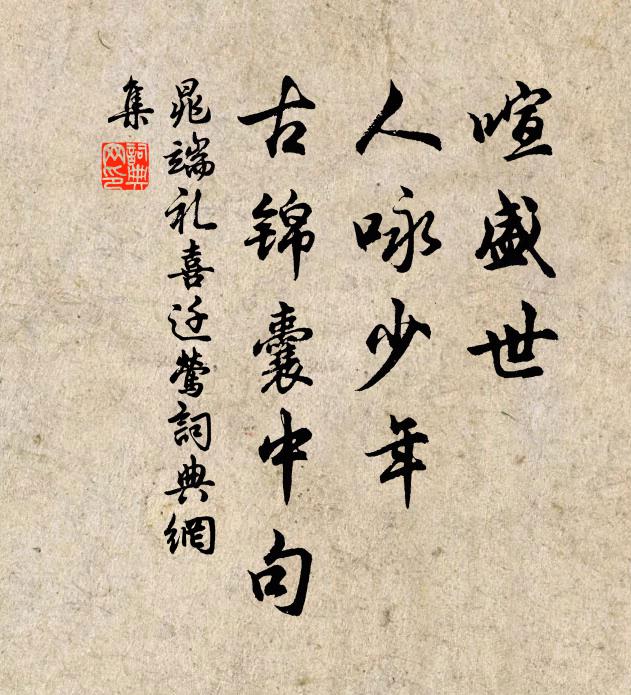 喧盛世
人咏少年
古锦囊中句
晁端礼喜迁莺词典網
集
詞典
网印